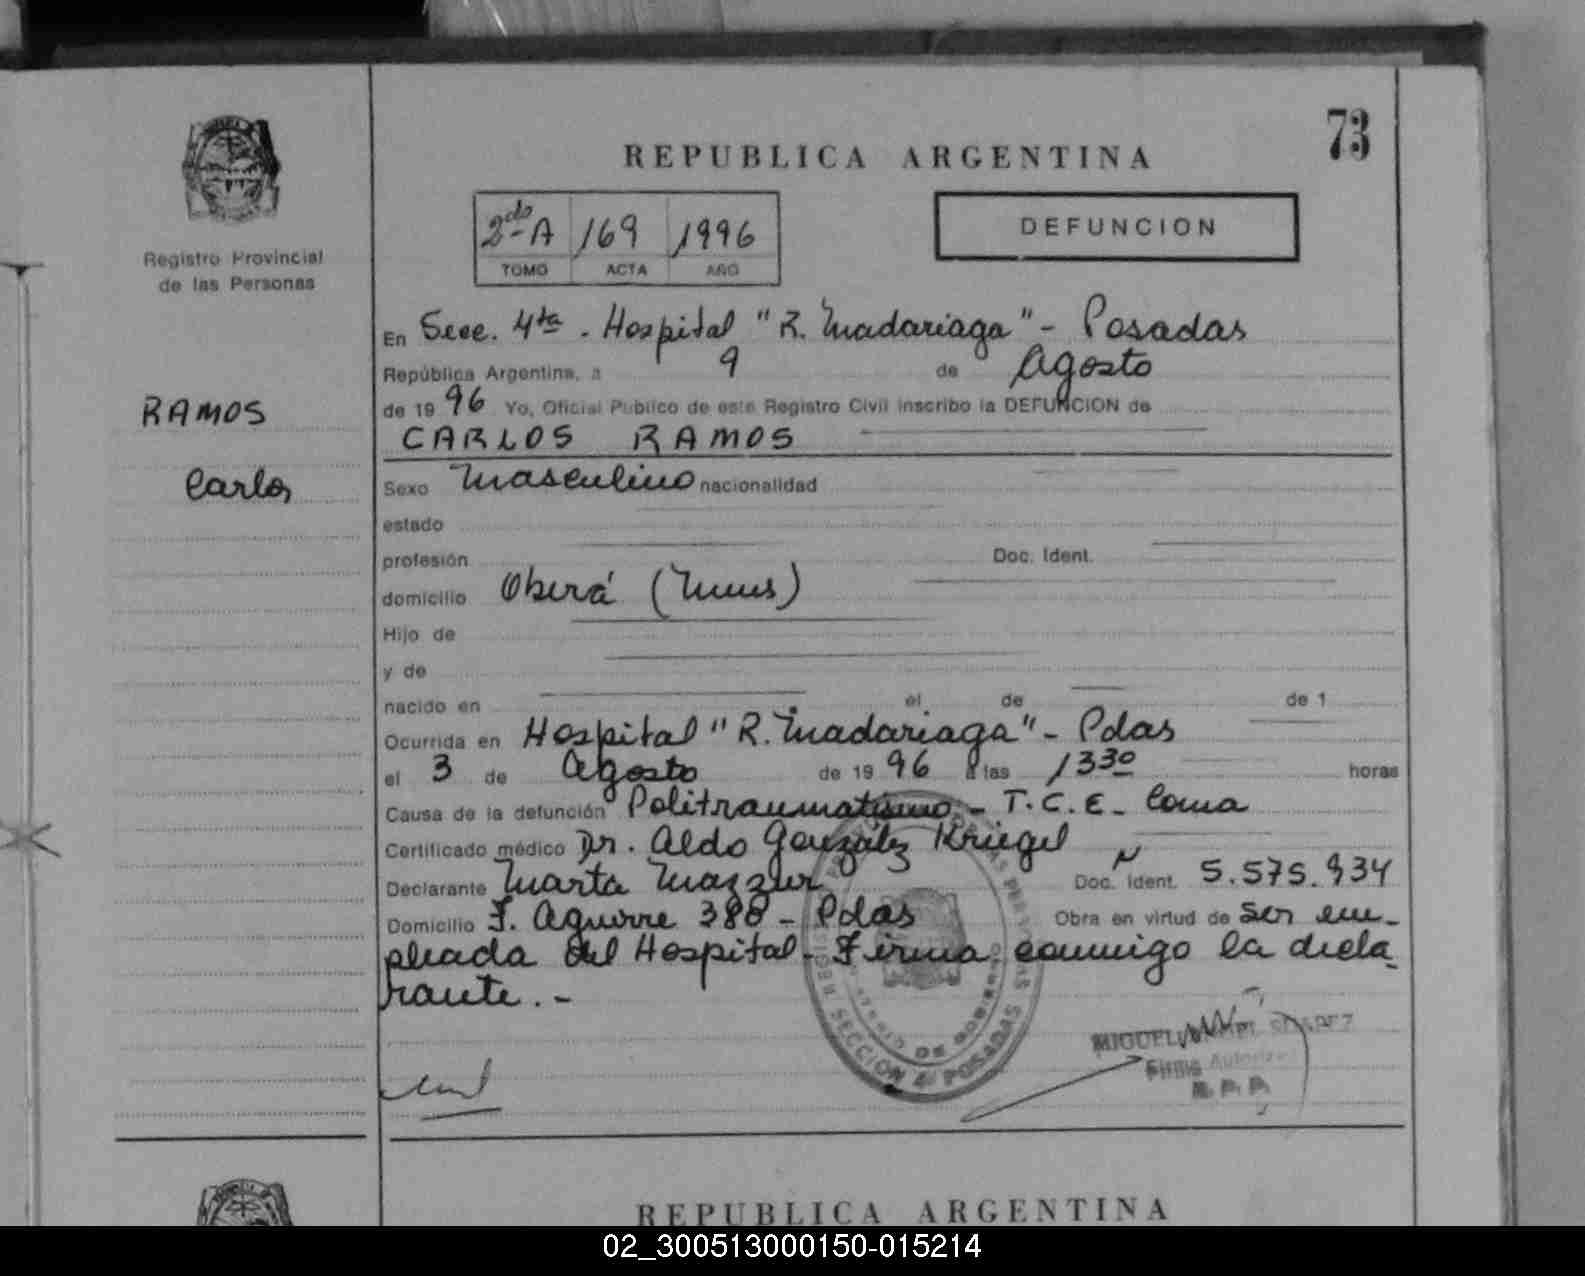 73
REPUBLICA ARGENTINA
2do A 169 1996
TOMO ACTA AÑO
DEFUNCION
Registro Provincial
de las Personas
RAMOS
Carlos
En Secc. 4ta - Hospital "R. Madariaga" - Posadas
República Argentina, a 9 de Agosto
de 19 96 Yo, Oficial Público de este Registro Civil inscribo la DEFUNCION de
CARLOS RAMOS
Sexo Masculino nacionalidad
estado
profesión Doc. Ident.
domicilio Oberá (Mnes)
Hijo de
y de
nacido en el de de 1
Ocurrida en Hospital "R. Madariaga" - Pdas
el 3 de Agosto de 19 96 a las 13 30 horas
Causa de la defunción Politraumatismo - T.C.E - Coma
Certificado médico Dr. Aldo González Kriegel
Declarante Marta Mazzur Doc. Ident. N 5.575.934
Domicilio F. Aguirre 388 - Pdas Obra en virtud de ser em-
pleada del Hospital - Firma conmigo la decla-
rante. -
REGISTRO PROVINCIAL DE LAS PERSONAS
MINISTERIO DE GOBIERNO
SECCION 4ª POSADAS
MIGUEL
Firma Autorizada
R.P.P.
REPUBLICA ARGENTINA
02_300513000150-015214